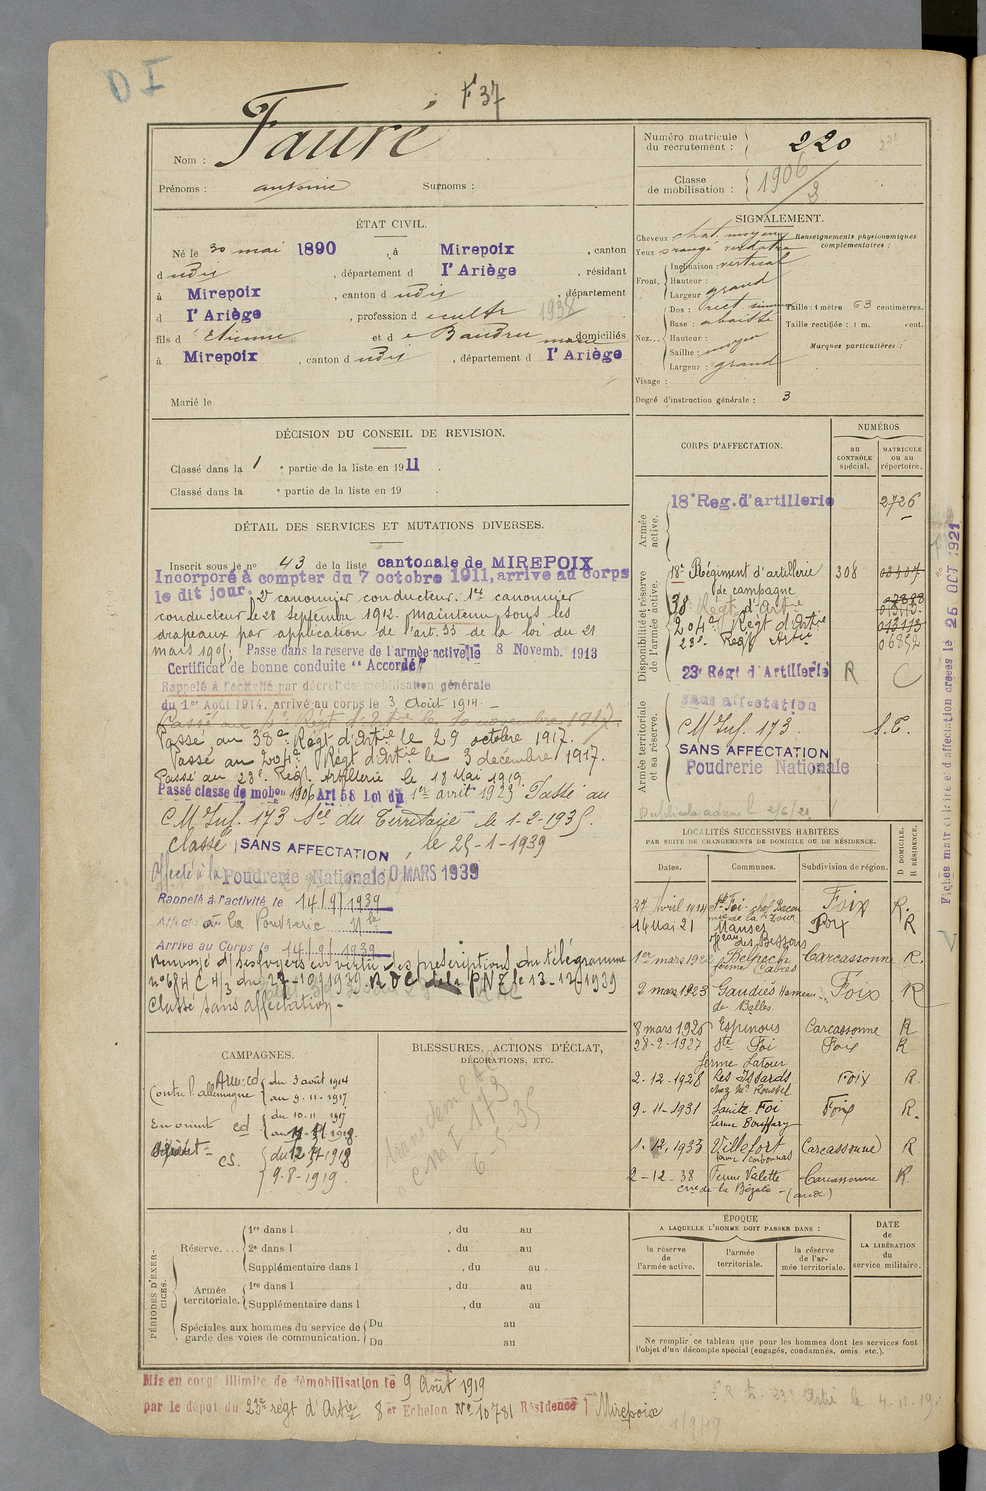 D I
F 37
Nom : Fauré
Prénoms : antoine Surnoms :
Numéro matricule du recrutement : 220
Classe de mobilisation : 1906
ÉTAT CIVIL.
Né le 30 mai 1890, à Mirepoix, canton
d udit, département d l'Ariège, résidant
à Mirepoix, canton d udit, département
d l'Ariège, profession d e cultr 1938
fils d' Etienne et d e Baudru marie domiciliés
à Mirepoix, canton d udit, département d l'Ariège
Marié le
SIGNALEMENT.
Cheveux chat. moyen
Yeux orangé verdâtre
Front. Inclinaison : vertical
Hauteur :
Largeur grand
Nez... Dos : rect. sinueux
Base : abaissé
Hauteur :
Saillie : moyen
Largeur : grand
Visage :
Degré d'instruction générale : 3
Renseignements physionomiques complémentaires :
Taille : 1 mètre 63 centimètres.
Taille rectifiée : 1 m. cent.
Marques particulières :
DÉCISION DU CONSEIL DE REVISION.
Classé dans la 1e partie de la liste en 1911.
Classé dans la e partie de la liste en 19 .
DÉTAIL DES SERVICES ET MUTATIONS DIVERSES.
Inscrit sous le no 43 de la liste cantonale de MIREPOIX
Incorporé à compter du 7 octobre 1911, arrivé au corps
le dit jour. 2e canonnier conducteur. 1er canonnier
conducteur le 28 Septembre 1912. Maintenu sous les
drapeaux par application de l'art. 33 de la loi du 21
mars 1905. Passé dans la réserve de l'armée active le 8 Novemb. 1913
Certificat de bonne conduite "Accordé"
Rappelé à l'activité par décret de mobilisation générale
du 1er Août 1914, arrivé au corps le 3 Août 1914. -
Passé au Régt d'Artie le 10 novembre 1917.
Passé au 38e Régt d'Artie le 29 octobre 1917.
Passé au 204e Régt d'Artie le 3 décembre 1917.
Passé au 23e Régt. Artillerie le 18 Mai 1919.
Passé classe de mobon 1906 Art 58 Loi du 1er avril 1923 Passé au
CM Inf. 173 Sce du Territoire le 1-2-1935.
Classé SANS AFFECTATION, le 25-1-1939
Affecté à la Poudrerie Nationale MARS 1939
Rappelé à l'activité, le 14/9/1939
Affecté à la Poudrerie Nle
Arrivé au Corps le 14/9/1939
Renvoyé d/ses foyers en vertu des prescriptions du télégramme
Classé sans affectation -
CORPS D'AFFECTATION.
NUMÉROS
au CONTRÔLE spécial.
MATRICULE ou au répertoire.
Armée active.
18e Reg. d'artillerie 2726
Disponibilité et réserve de l'armée active.
18e Régiment d'artillerie de campagne 308
38e Régt d'Artie
204e Régt d'Artie 013113
23e Régt Artie 06852
23e Régt d'Artillerie R C
Armée territoriale et sa réserve.
sans affectation
CM Inf. 173 S.T.
SANS AFFECTATION
Poudrerie Nationale
Fiches matriculaire et d'affectation créées le 25 OCT 1921
LOCALITÉS SUCCESSIVES HABITÉES
PAR SUITE DE CHANGEMENTS DE DOMICILE OU DE RÉSIDENCE.
Dates. Communes. Subdivision de région. D DOMICILE. R RÉSIDENCE.
27 Avril 1914 Ste Foi Foix R.
16 Mai 21 Manses Foix R
1er mars 192 Belpech ferme Cabres Carcassonne R.
2 mars 1923 Gaudiès Hameau de Balles Foix R
8 mars 1926 Espinous Carcassonne R
28-2-1927 Ste Foi ferme Latour Foix R
2-12-1928 Les Issards chez Mr Roussel Foix R.
9-11-1931 Sainte Foi ferme Bouffary Foix R.
1-12-1933 Villefort Carcassonne R
2-12-38 Ferme Valette Cne de la Bézole - (aude) Carcassonne R.
CAMPAGNES.
Contre l'allemagne Arm: cd du 3 août 1914 au 9-11-1917
En orient cd du 10-11-1917
cs. du 12-11-1918
9-8-1919.
BLESSURES, ACTIONS D'ÉCLAT, DÉCORATIONS, ETC.
CM I 173
PÉRIODES D'EXERCICES.
Réserve.... 1re dans l , du au
2e dans l , du au
Supplémentaire dans l , du au
Armée territoriale. 1re dans l , du au
Supplémentaire dans l , du au
Spéciales aux hommes du service de garde des voies de communication. Du au
Du au
ÉPOQUE
A LAQUELLE L'HOMME DOIT PASSER DANS :
la réserve de l'armée active.
l'armée territoriale.
la réserve de l'armée territoriale.
DATE de LA LIBÉRATION du service militaire.
Ne remplir ce tableau que pour les hommes dont les services font
l'objet d'un décompte spécial (engagés, condamnés, omis, etc.).
Mis en congé illimité de démobilisation le 9 Août 1919
par le dépôt du 23e régt d'Artie 8e Echelon No 10781 Résidence Mirepoix